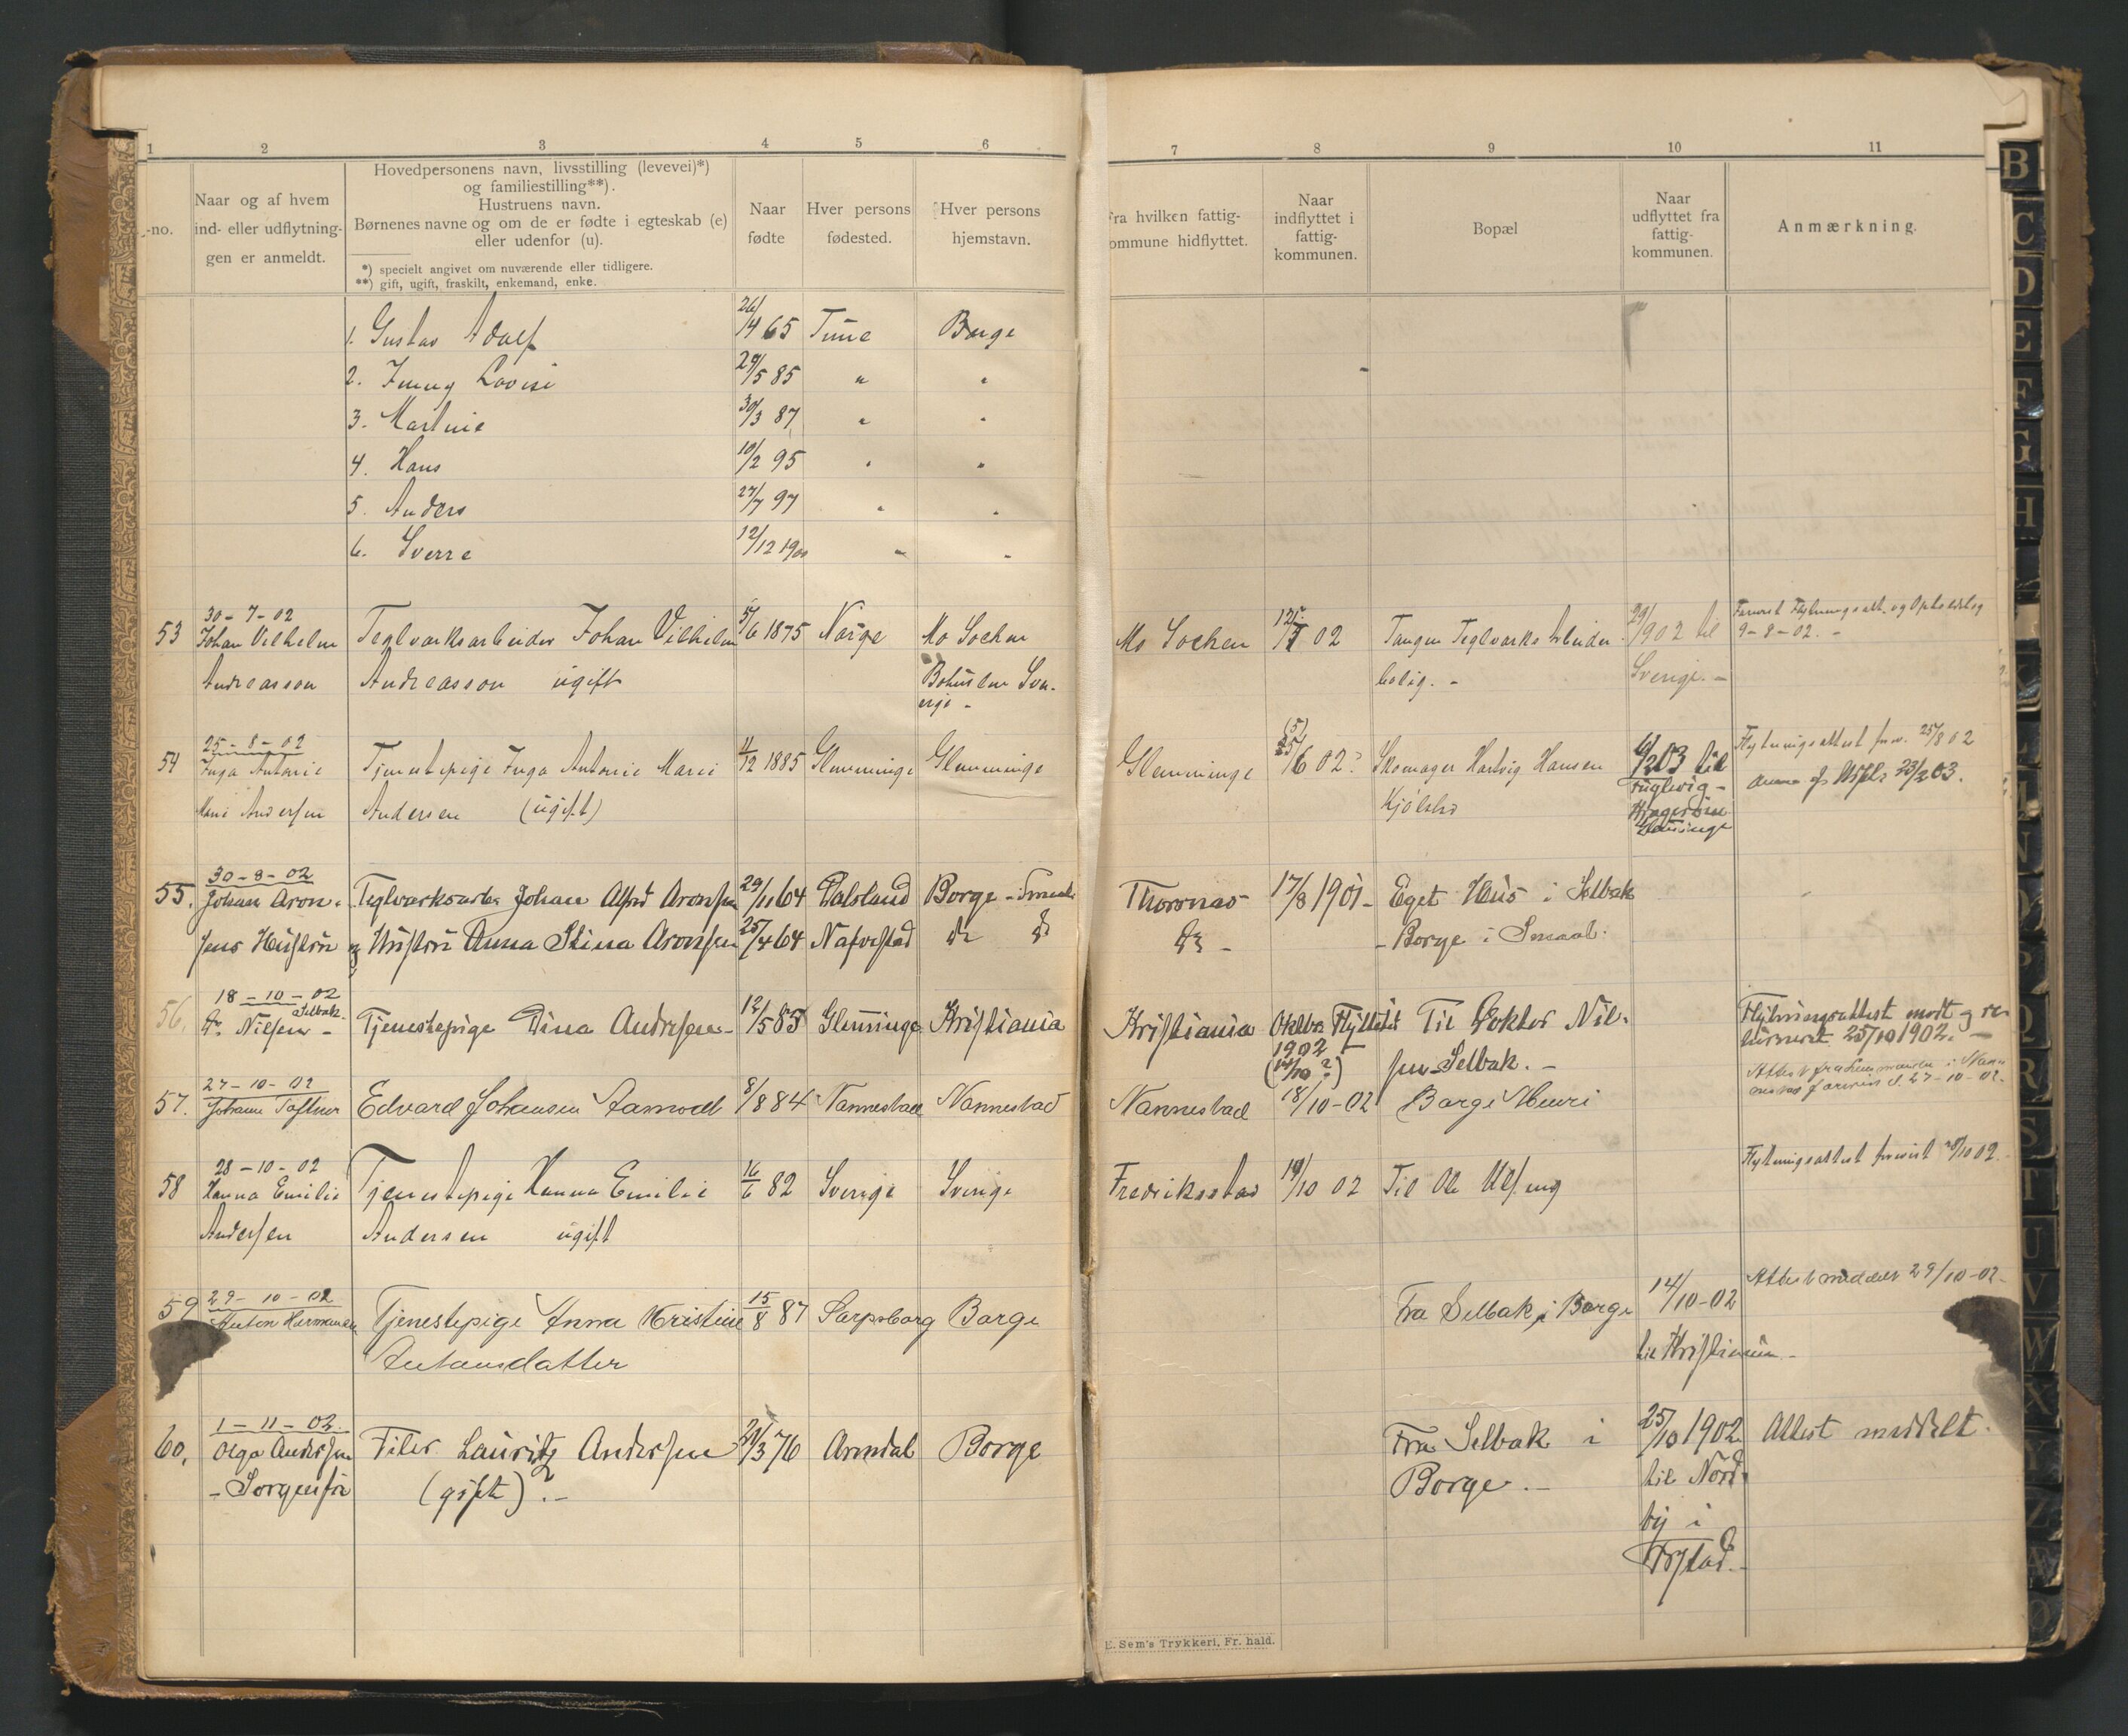 1 2 3 4 5 6 7 8 9 10 11
-no.
Naar og af hvem
ind- eller udflytning-
gen er anmeldt.
Hovedpersonens navn, livsstilling (levevei)*)
og familiestilling**).
Hustruens navn.
Børnenes navne og om de er fødte i egteskab (e)
eller udenfor (u).
*) specielt angivet om nuværende eller tidligere.
**) gift, ugift, fraskilt, enkemand, enke.
Naar
fødte
Hver persons
fødested.
Hver persons
hjemstavn.
Fra hvilken fattig-
ommune hidflyttet.
Naar
indflyttet i
fattig-
kommunen.
Bopæl
Naar
udflyttet fra
fattig-
kommunen.
Anmærkning.
1. Gustav Adolf 26/4 65 Tune Borge
2. Jenny Lovise 29/5 85 " "
3. Martine 30/3 87 " "
4. Hans 10/2 95 " "
5. Anders 27/7 97 " "
6. Sverre 12/12 1900 " "
53 30-7-02
Johan Vilhelm
Andreasson
Teglverksarbeider Johan Vilhelm
Andreasson ugift
5/6 1875 Norge Mo Sochen
Bohuslen Sve-
rige -
Mo Sochen 02 Tangen Teglverks Arbeider
bolig. -
1902 til
Sverige. -
Flytningsatt. og
9-8-02. -
54 25-8-02
Inga Antonie
Marie Andersen
Tjenestepige Inga Antonie Marie
Andersen (ugift)
4/12 1885 Glemminge Glemminge
Glemminge 15/6 02? Skomager Hartvig Hansen
Kjølsbø
03 til
Fuglevig
Glemminge
Flytningsattest 25/8 02
23/2 03.
55. 30-8-02
Johan Aron-
sens Hustru
Teglverksarb. Johan Alfred Aronsen 29/11 64 Dalsland Borge - Smaal.
og Hustru Anna Stina Aronsen 25/4 64 Nafvestad do do
Thorsnæs 17/8 1901 - Eget Hus i Selbak
do - - Borge i Smaal.
56. 18-10-02
Dr. Nilsen - Selbak.
Tjenestepige Dina Andersen - 12/5 85 Glemminge Kristiania
Kristiania Oktbr. Flyttet Til Doktor Nil-
1902
(14/10?) sen Selbak. -
Flytningsattest modt. og re-
turneret 25/10 1902. -
57. 27-10-02
Johann Toftner
Edvard Johansen Aamodt 8/8 84 Nannestad Nannestad
Nannestad 18/10-02 Borge Meieri
Attest fra Lensmanden i Nan-
nestad 27-10-02.
58 28-10-02
Hanna Emilie
Andersen
Tjenestepige Hanna Emilie
Andersen ugift
16/6 82 Sverige Sverige
Fredriksstad 14/10 02 Til Ole Ulfeng
Flytningsattest forevist 28/10 02.
59 29-10-02
Anton Hermansen
Tjenestepige Anna Kristine
Antonsdatter
15/8 87 Sarpsborg Borge
Fra Selbak i Borge 14/10-02
til Kristiania -
Attest meddelt 29/10-02-
60. 1-11-02.
Olga Andersen
- Sorgenfri
Filer Lauritz Andersen
(gift). -
29/3 76 Arendal Borge
Fra Selbak i
Borge. -
25/10 1902
til Nord-
by i
Frstad. -
Attest meddelt.
E. Sem's Trykkeri, Fr. hald.
B
C
D
E
F
G
H
L
N
O
P
Q
R
S
T
U
V
W
X
Y
Z
Æ
Ø